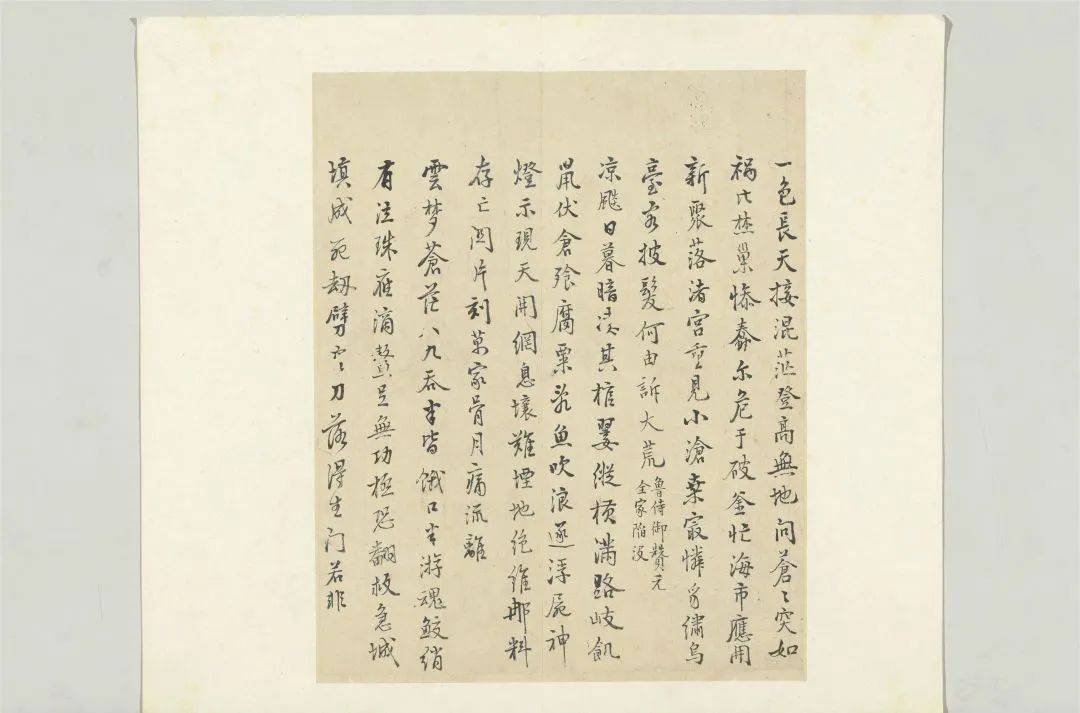 一色長天接混茫登高無地問蒼〻突如
禍比焚巢慘蠢尔危于破釜忙海市應開
新聚落渚宮重見小滄桑最憐豸繡烏
臺客披髮何由訴大荒魯侍御贊元
全家陷没
涼飈日暮暗淒其棺翣縱横滿路歧飢
鼠伏倉飱腐粟乳魚吹浪逐浮屍神
燈示現天開網息壤難堙地絶維那料
存亡関片刻萬家骨月痛流離
雲梦蒼茫八九吞半皆餓口半游魂鮫綃
有泣珠應滴鰲足無功極恐翻救急城
填成死劫劈空刀落得生门若非